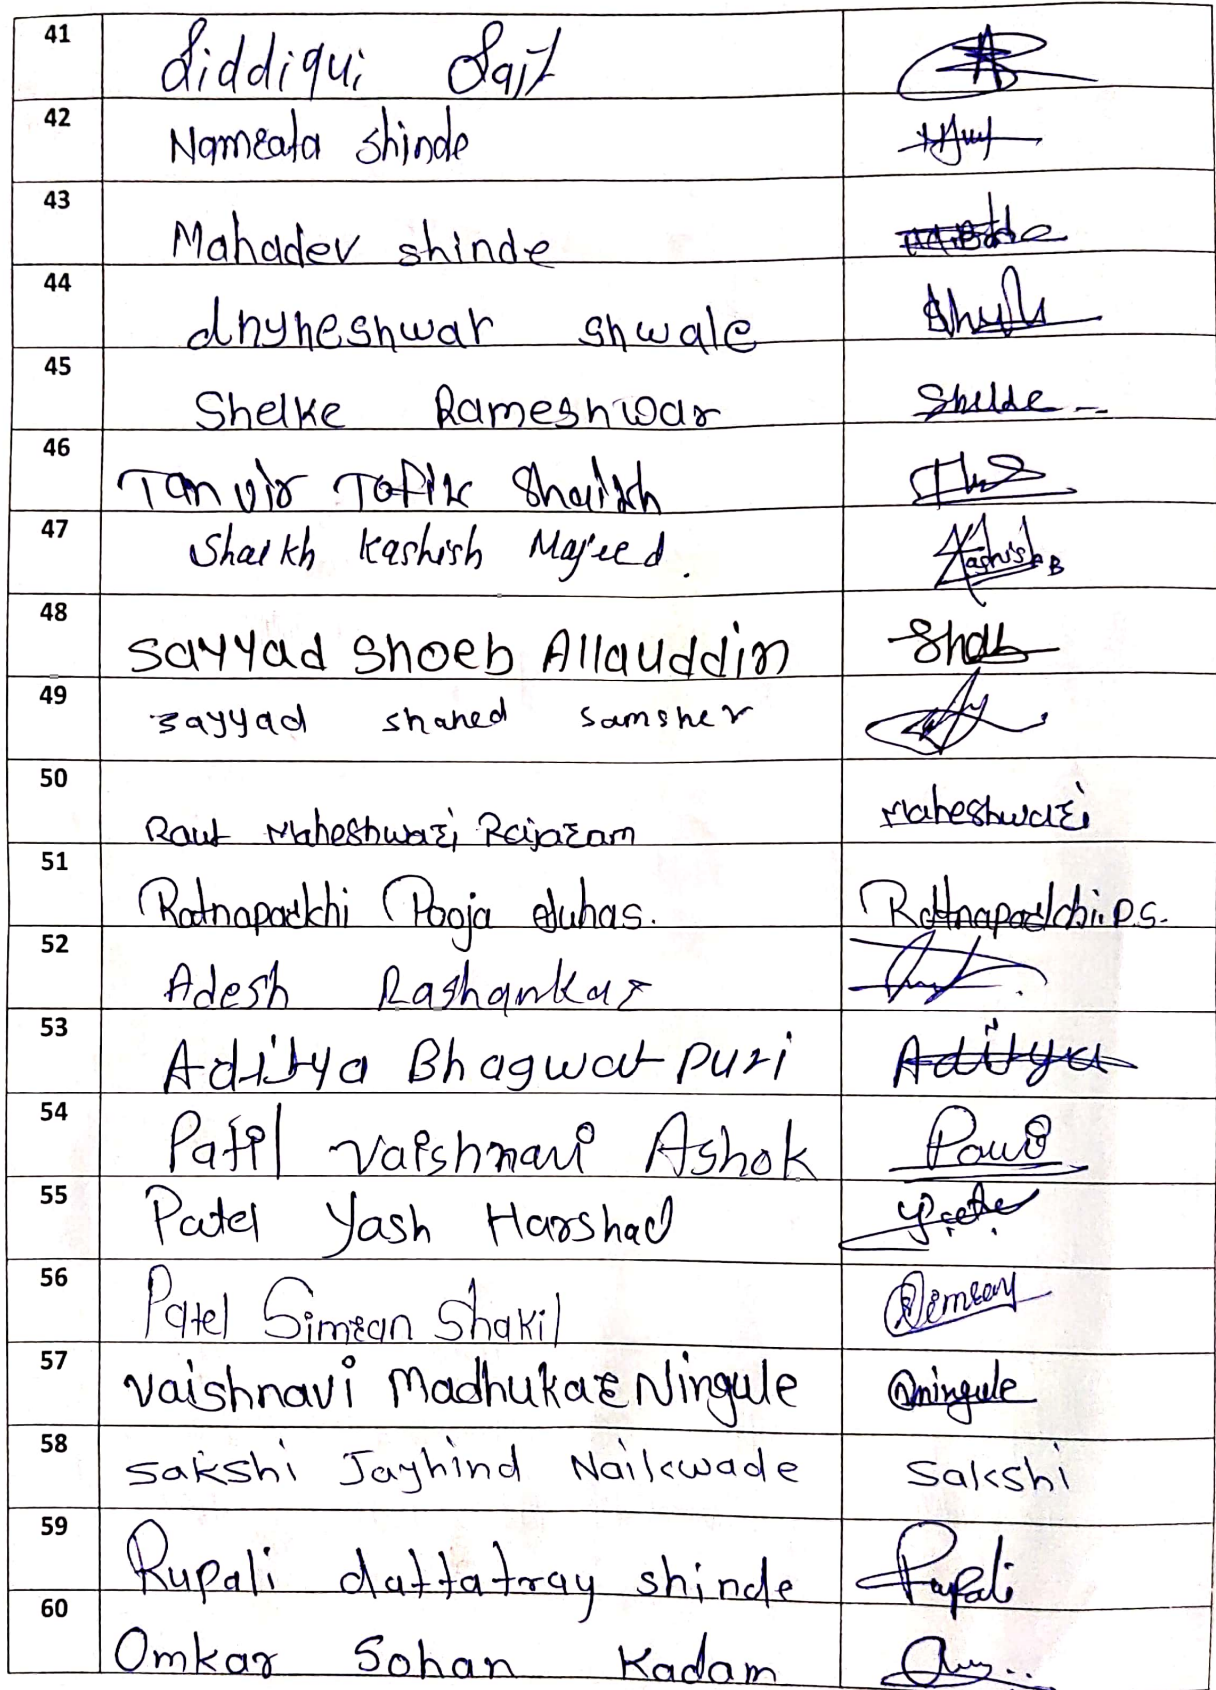 41 Siddiqui Saif
42 Namrata shinde
43 Mahadev shinde
44 dnyneshwar shwale
45 Shelke Rameshwar Shelke
46 Tanvir Tofik Shaikh
47 Shaikh Kashish Majeed. Kashish B
48 Sayyad Shoeb Allauddin
49 sayyad shahed samsher
50 Raut Maheshwari Rajaram Maheshwari
51 Ratnaparkhi Pooja Suhas. Ratnaparkhi.P.S.
52 Adesh Rashankar
53 Aditya Bhagwat puri Aditya
54 Patil Vaishnavi Ashok
55 Patel Yash Harshad
56 Patel Simran Shakil Simran
57 Vaishnavi Madhukar Ningule ningule
58 Sakshi Jayhind Naikwade Sakshi
59 Rupali dattatray shinde Rupali
60 Omkar Sohan Kadam